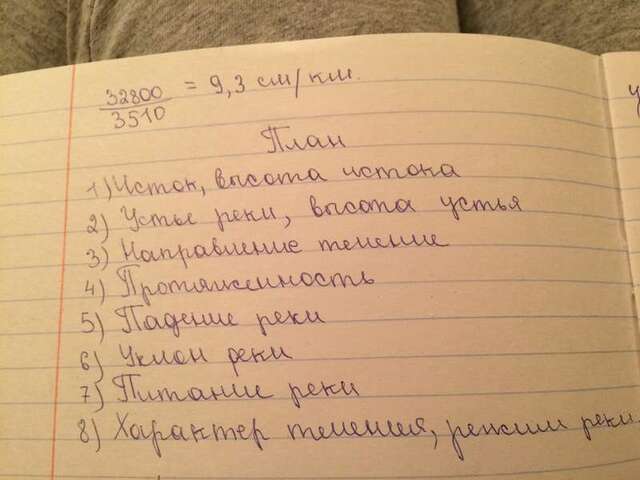 32800
3510
= 9,3 см/км.
План
1) Исток, высота истока
2) Устье реки, высота устья
3) Направление течение
4) Протяженность
5) Падение реки
6) Уклон реки
7) Питание реки
8) Характер течения, режим реки.